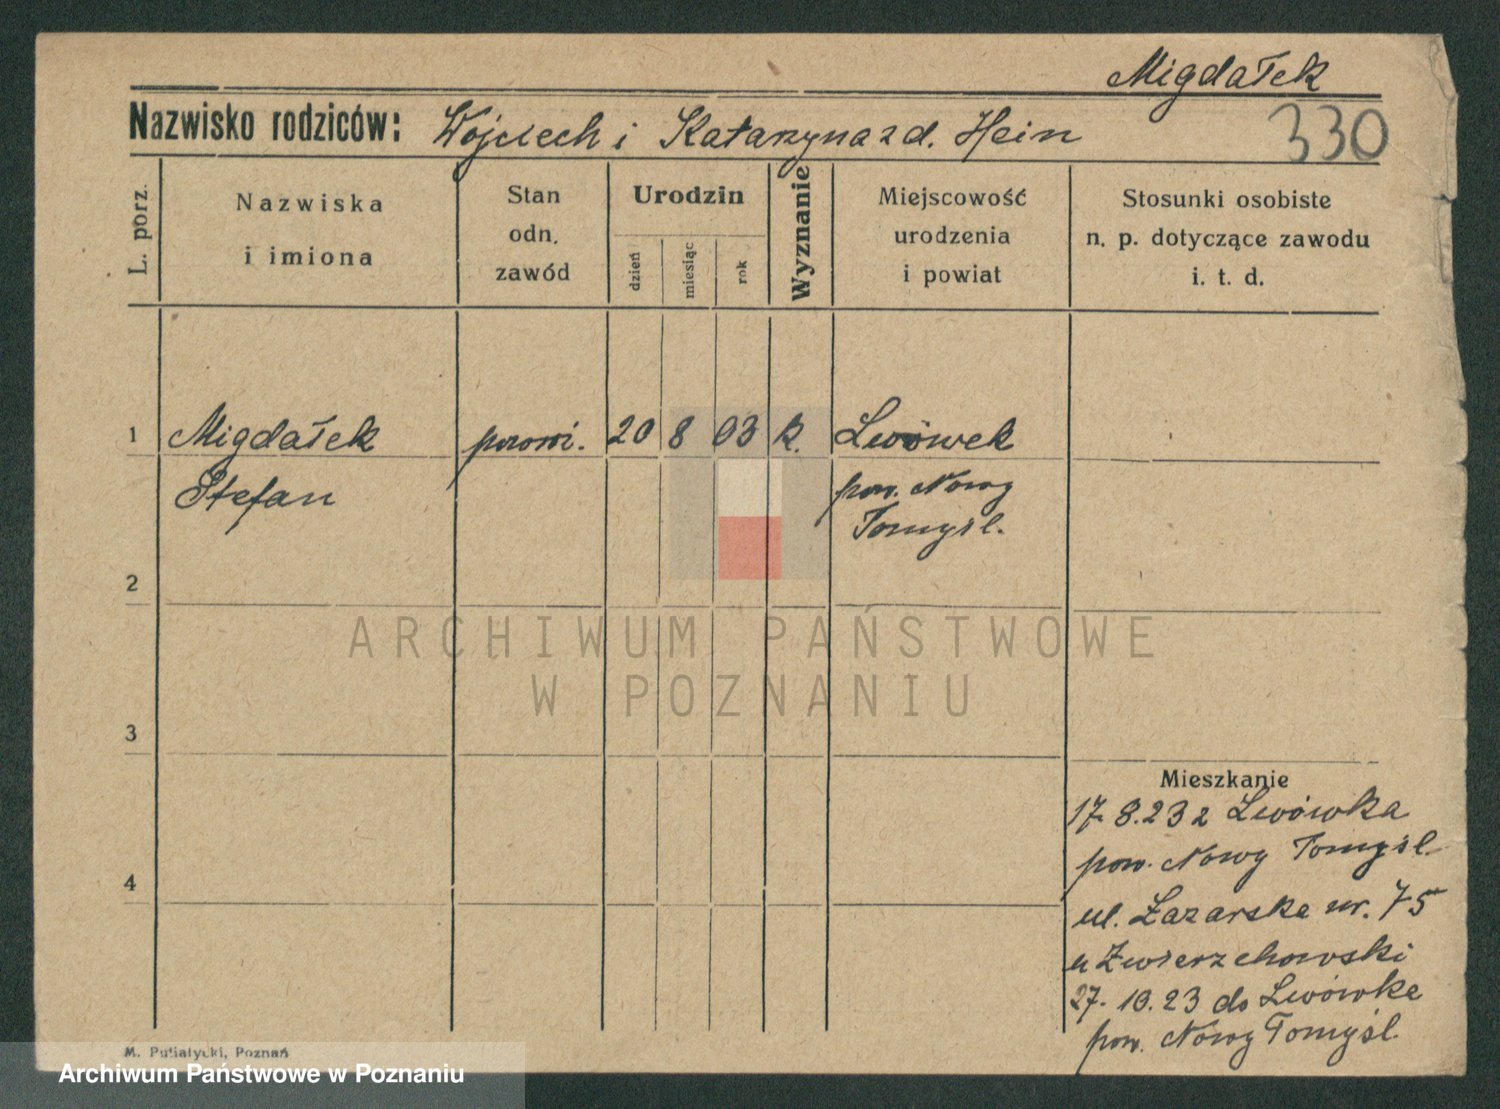 Migdałek
Nazwisko rodziców: Wojciech i Katarzyna z d. Hein
330
L. porz.
Nazwiska
i imiona
Stan
odn.
zawód
Urodzin
dzień
miesiąc
rok
Wyznanie
Miejscowość
urodzenia
i powiat
Stosunki osobiste
n. p. dotyczące zawodu
i. t. d.
1 Migdałek 20 8 03 k. Lwówek
Stefan pow. Nowy
Tomyśl.
2
ARCHIWUM PAŃSTWOWE
W POZNANIU
3
Mieszkanie
17.8.23 z Lwówka
pow. Nowy Tomyśl.
4
ul. Łazarska nr. 75
u Zwierzchowski
27.10.23 do Lwówka
pow. Nowy Tomyśl.
M. Putiatycki, Poznań
Archiwum Państwowe w Poznaniu